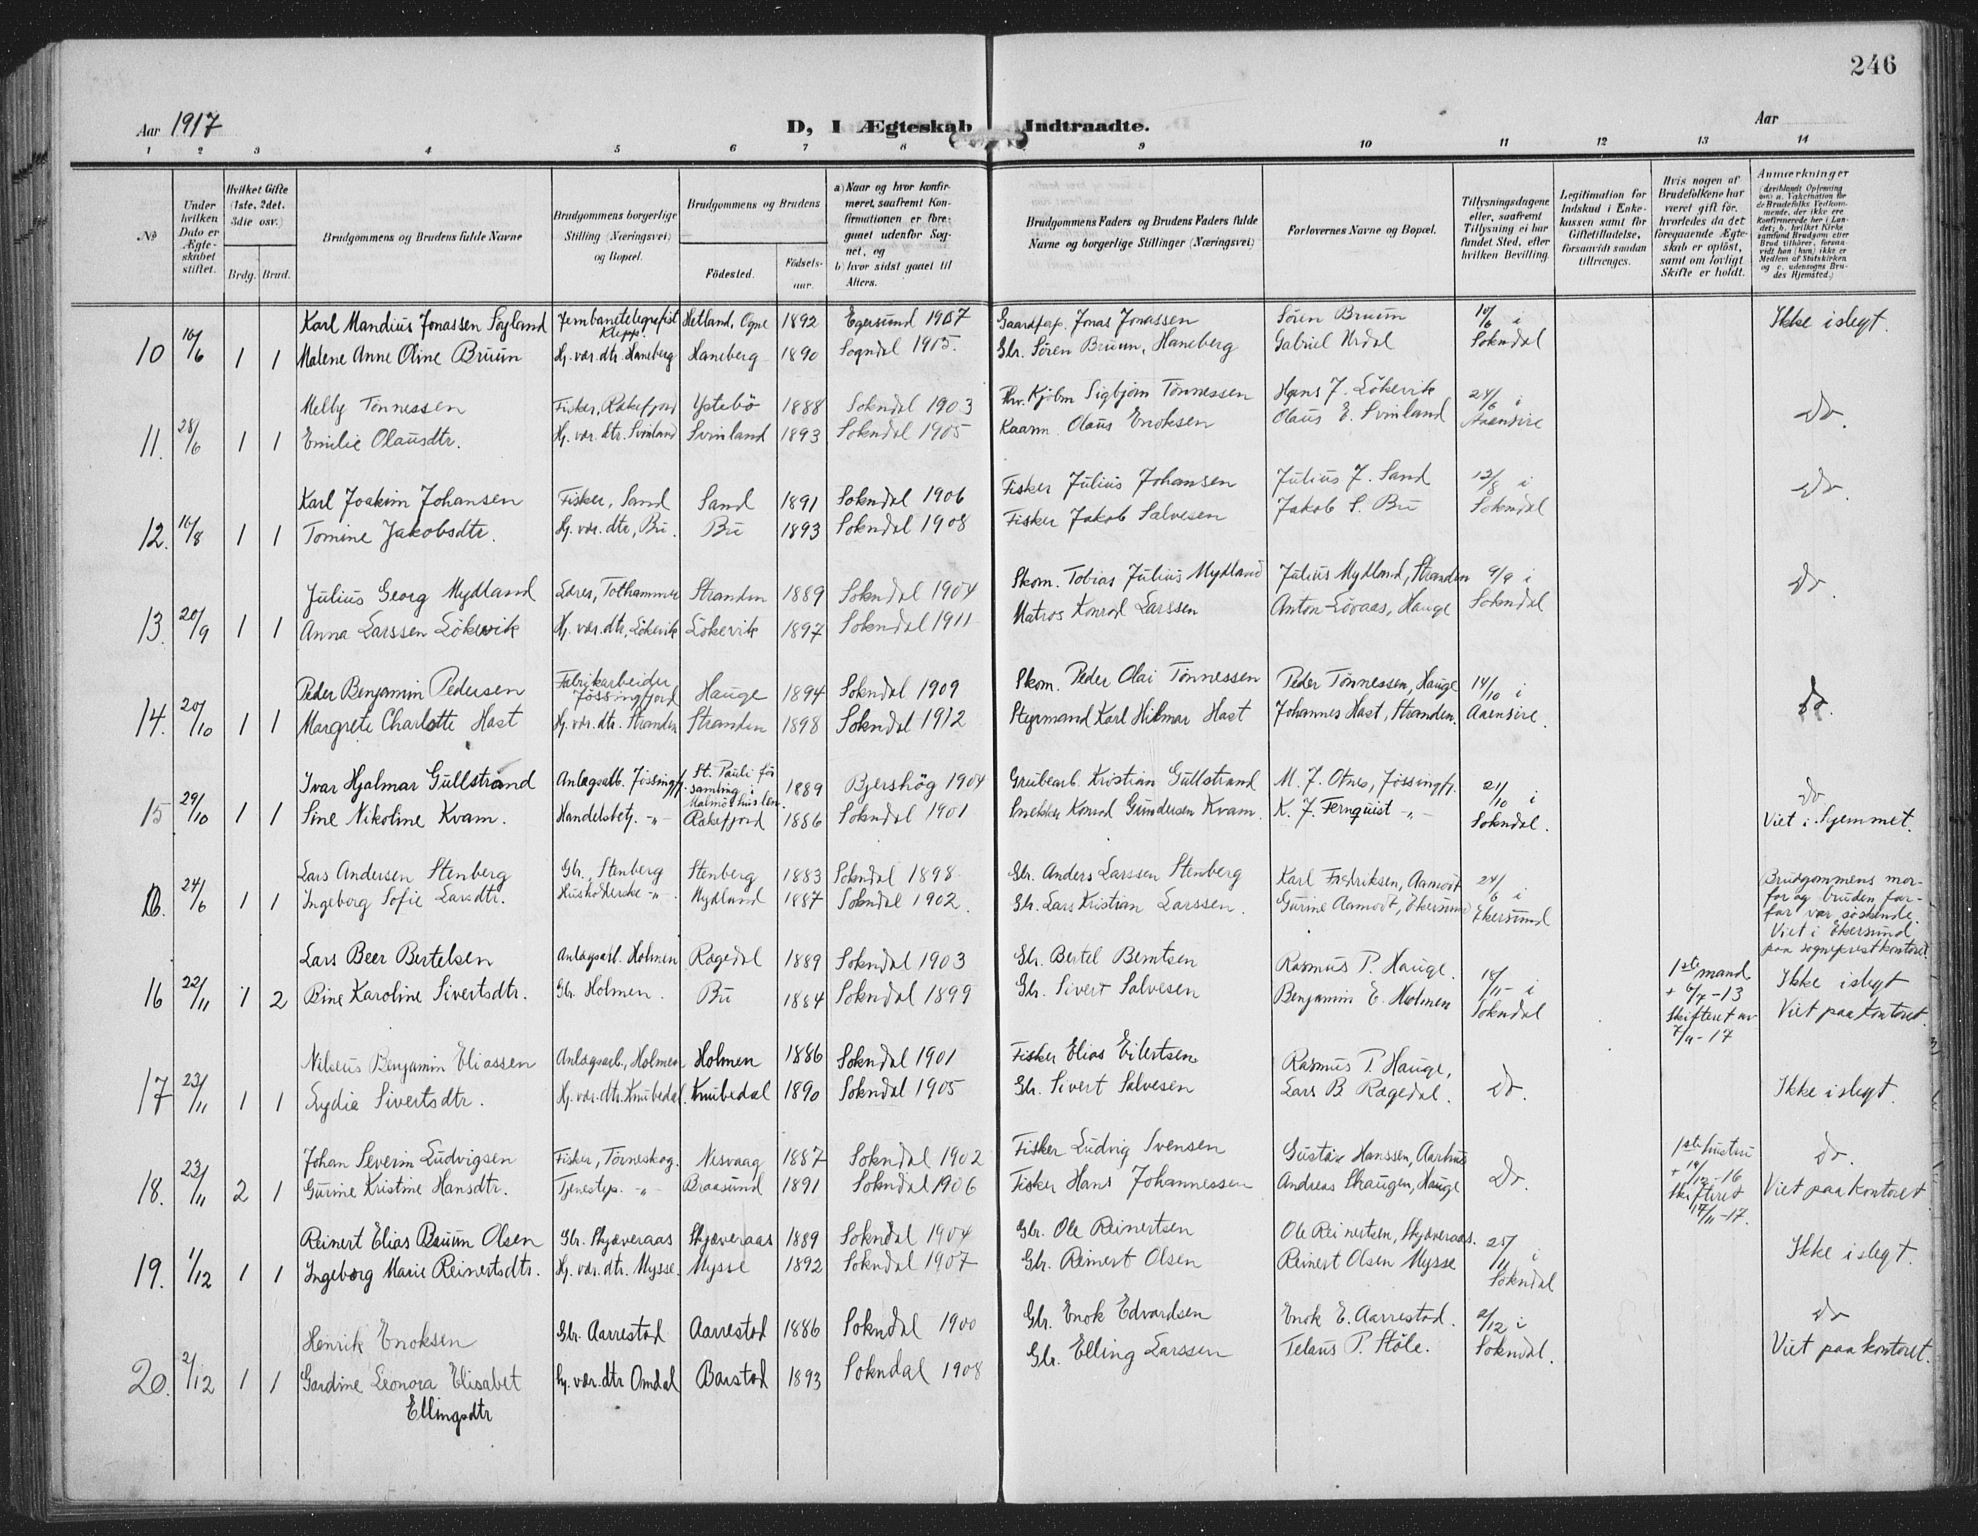 246
Aar 1917
D, I Ægteskab Indtraadte.
Aar
1 2 3 4 5 6 7 8 9 10 11 12 13 14
No
Under hvilken Dato er Ægteskabet stiftet.
Hvilket Gifte (1ste, 2det. 3die osv.)
Brdg. Brud.
Brudgommens og Brudens fulde Navne
Brudgommens borgerlige Stilling (Næringsvei) og Bopæl.
Brudgommens og Brudens
Fødested.
Fødselsaar.
a) Naar og hvor konfirmeret, saafremt Konfirmationen er foregaaet udenfor Sognet, og
b) hvor sidst gaaet til Alters.
Brudgommens Faders og Brudens Faders fulde Navne og borgerlige Stillinger (Næringsvei)
Forlovernes Navne og Bopæl.
Tillysningsdagene eller, saafremt Tillysning ei har fundet Sted, efter hvilken Bevilling.
Legitimation for Indskud i Enkekassen samt for Giftetilladelse, forsaavidt saadan tiltrænges.
Hvis nogen af Brudefolkene har været gift før, hvorledes da det foregaaende Ægteskab er opløst, samt om lovligt Skifte er holdt.
Anmerkninger
Karl Mandius Jonassen Søyland Jernbanetelegrafist Klepp! Hetland, Ogne 1892 Egersund 1907 Gaardforp. Jonas Jonassen Søren Bruun 10/6 i Ikke i slegt.
10 16/6 1 1 Malene Anne Oline Bruun Hj. vær. dtr. Haneberg Haneberg 1890 Sogndal 1905. Gbr. Søren Bruun, Haneberg Gabriel Urdal Sokndal
Melby Tønnessen Fisker, Rækefjord Ystebö 1888 Sokndal 1903 Sigbjørn Tønnessen Hans J. Lökevik 24/6 i Do.
11. 28/6 1 1 Emilie Olausdtr. Hj. vær. dtr. Svinland Svinland 1893 Sokndal 1905 Kaarm. Olaus Enoksen Olaus E. Svinland Aaensire
Karl Joakim Johansen Fisker, Sand Sand 1891 Sokndal 1906 Fisker Julius Johansen Julius J. Sand 12/8 i Do.
12. 16/8 1 1 Tomine Jakobsdtr. Hj. vær. dtr, Bu. Bu 1893 Sokndal 1908 Fisker Jakob Salvesen Jakob S. Bu Sokndal
Julius Georg Mydland Tothammer Stranden 1889 Sokndal 1904 Skom. Tobias Julius Mydland Julius Mydland, Stranden 9/9 i Do.
13. 20/9 1 1 Anna Larssen Lökevik Hj. vær. dtr, Lökevik Lökevik 1897 Sokndal 1911 Matros Konrad Larssen Anton Lovaas, Hauge Sokndal
Peder Benjamin Pedersen Fabrikarbeider Jøssingfjord Hauge 1894 Sokndal 1909 Skom. Peder Olai Tønnessen Peder Tønnessen, Hauge 14/10 i Do.
14. 20/10 1 1 Margrete Charlotte Hast Hj. vær. dtr. Stranden Stranden 1898 Sokndal 1912 Styrmand Karl Hilmar Hast Johannes Hast, Stranden. Aaensire.
Ivar Hjalmar Gullstrand Anlægsarb. Jøssingfj. St. Pauli församling i Malmöhus len. 1889 Bjershög 1904 Grubearb. Kristian Gullstrand M. J. Otnes, Jøssingfj. 21/10 i Do
15 29/10 1 1 Sine Nikoline Kvam. Handelsbetj. -"- Rækefjord 1886 Sokndal 1901 Snekker Konrad Gundersen Kvam. K. J. Fernquist -"- Sokndal. Viet i hjemmet.
Lars Andersen Stenberg Gbr. Stenberg Stenberg 1883 Sokndal 1898. Gbr. Anders Larssen Stenberg Karl Fredriksen, Aamodt 24/6 i Brudgommens morfar og bruden farfar var söskende. Viet i Ekersund paa sogneprestkontoret.
24/6 1 1 Ingeborg Sofie Larsdtr. Husholderske -"- Mydland 1887 Sokndal 1902. Gbr. Lars Kristian Larssen. Gurine Aamodt, Ekersund Ekersund
Lars Beer Bertelsen Anlægsarb. Holmen Rægedal 1889 Sokndal 1903 Gbr. Bertel Berntsen Rasmus P. Hauge. 18/11 - i 1ste mand + 6/7-13 Ikke i slegt
16 22/11 1 2 Bine Karoline Sivertsdtr. Gbr. Holmen. Bu 1884 Sokndal 1899 Gbr. Sivert Salvesen Benjamin E. Holmen Sokndal Skifteret av 7/9-17 Viet paa kontoret.
Nilseus Benjamin Eliassen Anlægsarb, Holmen Holmen 1886 Sokndal 1901 Fisker Elias Eilertsen Rasmus P. Hauge,
17 23/11 1 1 Lydia Sivertsdtr. Hj. vær. dtr. Knubedal. Knubedal 1890 Sokndal 1905 Gbr. Sivert Salvesen Lars B. Rægedal. Do. Ikke i slegt.
Johan Severin Ludvigsen Fisker, Törneskog. Nesvaag 1887 Sokndal 1902 Fisker Ludvig Svensen Gustav Hanssen, Aarhus 1ste hustru Do.
18. 23/11 2 1 Gurine Kristine Hansdtr. Tjenestep. -"- Braasund 1891 Sokndal 1906 Fisker Hans Johannessen Andreas Skaugen, Hauge Do. + 19/12-16 Skifteret 17/11-17. Viet paa kontoret
Reinert Elias Bruun Olsen Gbr. Skjæveraas Skjæveraas 1889 Sokndal 1904 Gbr. Ole Reinertsen Ole Reinertsen, Skjæveraas. 25/11 i Ikke i slegt.
19. 1/12 1 1 Ingeborg Marie Reinertsdtr. Hj. vær. dtr. Mysse. Mysse 1892 Sokndal 1907 Gbr. Reinert Olsen Reinert Olsen Mysse Sokndal
Henrik Enoksen Gbr. Aarrestad Aarrestad 1886 Sokndal 1900 Gbr. Enok Edvardsen Enok E. Aarrestad. 2/12 i Do
20. 21/12 1 1 Gardine Leonora Elisabet Ellingsdtr Hj. vær. dtr Omdal Barstad 1893 Sokndal 1908 Gbr. Elling Larssen Telaus P. Støle. Sokndal. Viet paa kontoret.